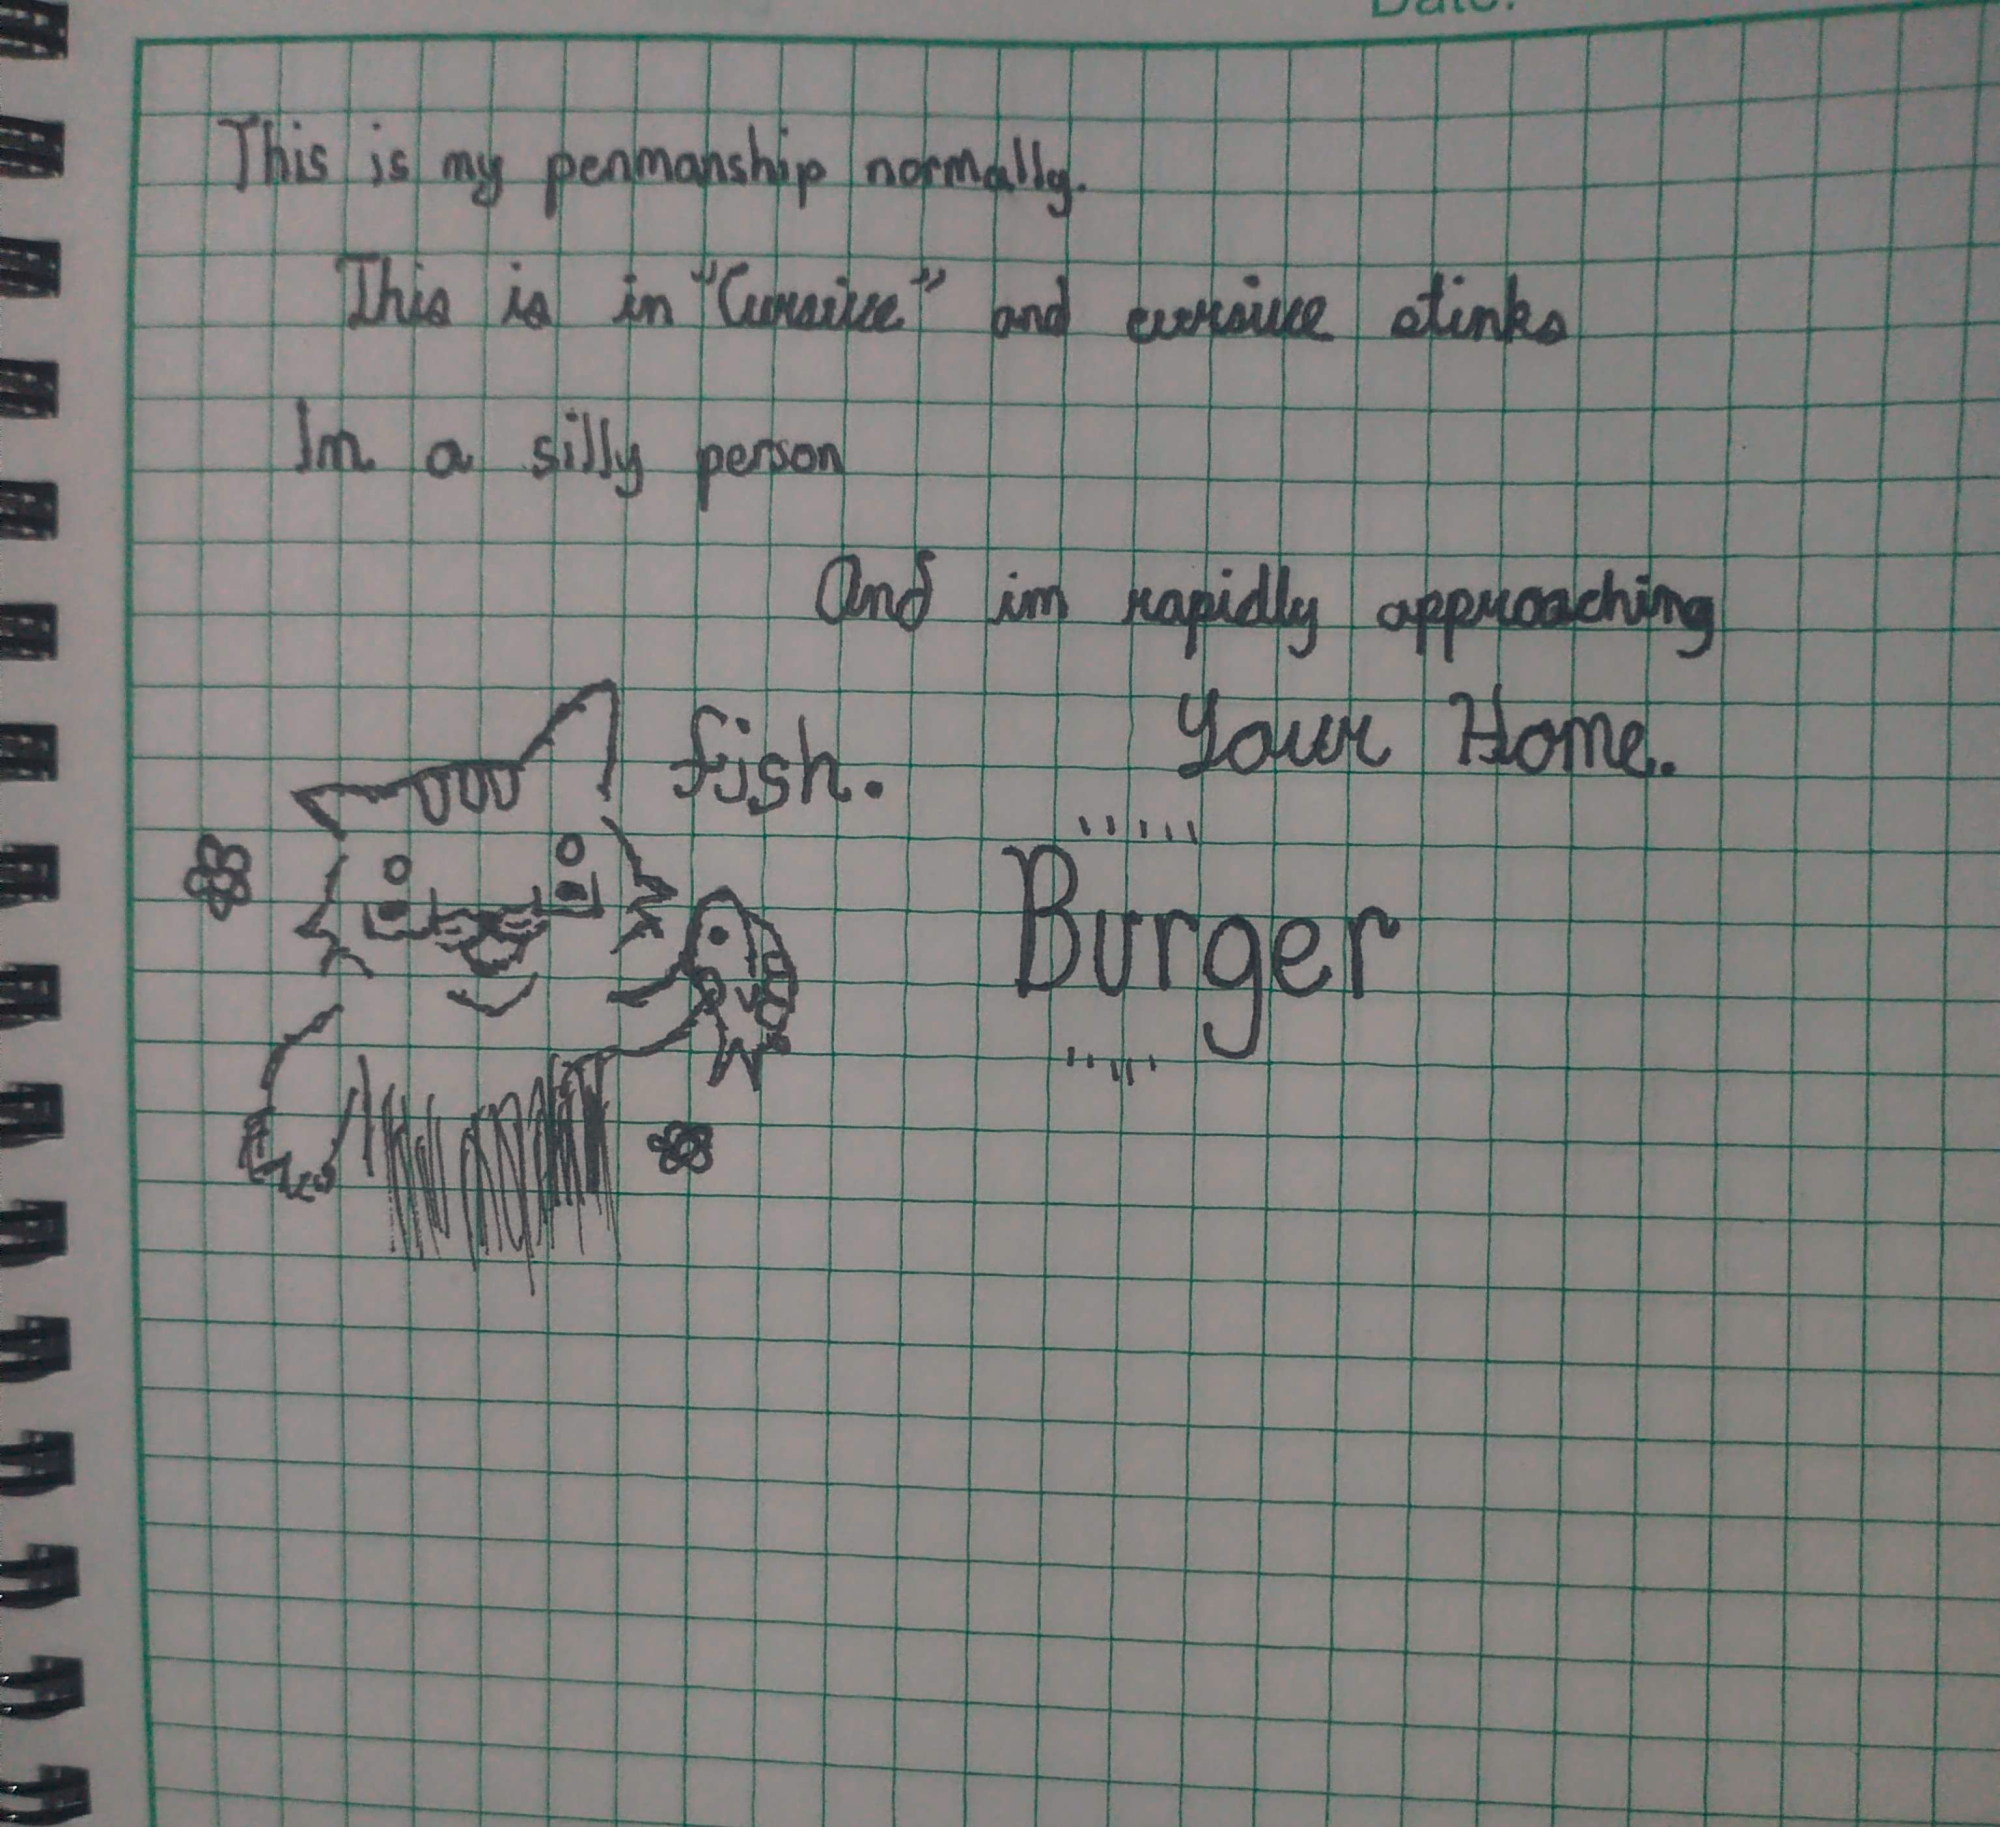 Date:
This is my penmanship normally.
This is in "Cursive" and cursive stinks
Im a silly person
And im rapidly approaching
Your Home.
fish.
Burger